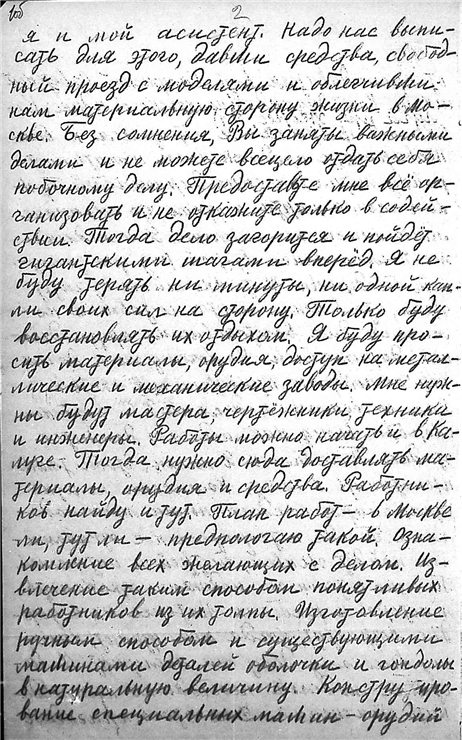 об
2
я и мой асистент. Надо нас выпи-
сать для этого, давши средства, свобод-
ный проезд с моделями и облегчивши
нам материальную сторону жизни в Мо-
скве. Без сомнения, Вы заняты важными
делами и не можете всецело отдать себя
побочному делу. Предоставьте мне всё ор-
ганизовать и не откажите только в содей-
ствии. Тогда дело загорится и пойдёт
гигантскими шагами вперёд. Я не
буду терять ни минуты, ни одной кап-
ли своих сил на сторону. Только буду
восстановлять их отдыхом. Я буду про-
сить материалы, орудия, доступ на метал-
лические и механические заводы. Мне нуж-
ны будут мастера, чертёжники, техники
и инженеры. Работы можно начать и в Ка-
луге. Тогда нужно сюда доставлять ма-
териалы, орудия и средства. Работни-
ков найду и тут. План работ – в Москве
ли, тут ли – предпологаю такой. Озна-
комление всех желающих с делом. Из-
влечение таким способом понятливых
работников из их толпы. Изготовление
ручным способом и существующими
машинами деталей оболочки и гондолы
в натуральную величину. Конструиро-
вание специальных машин – орудий